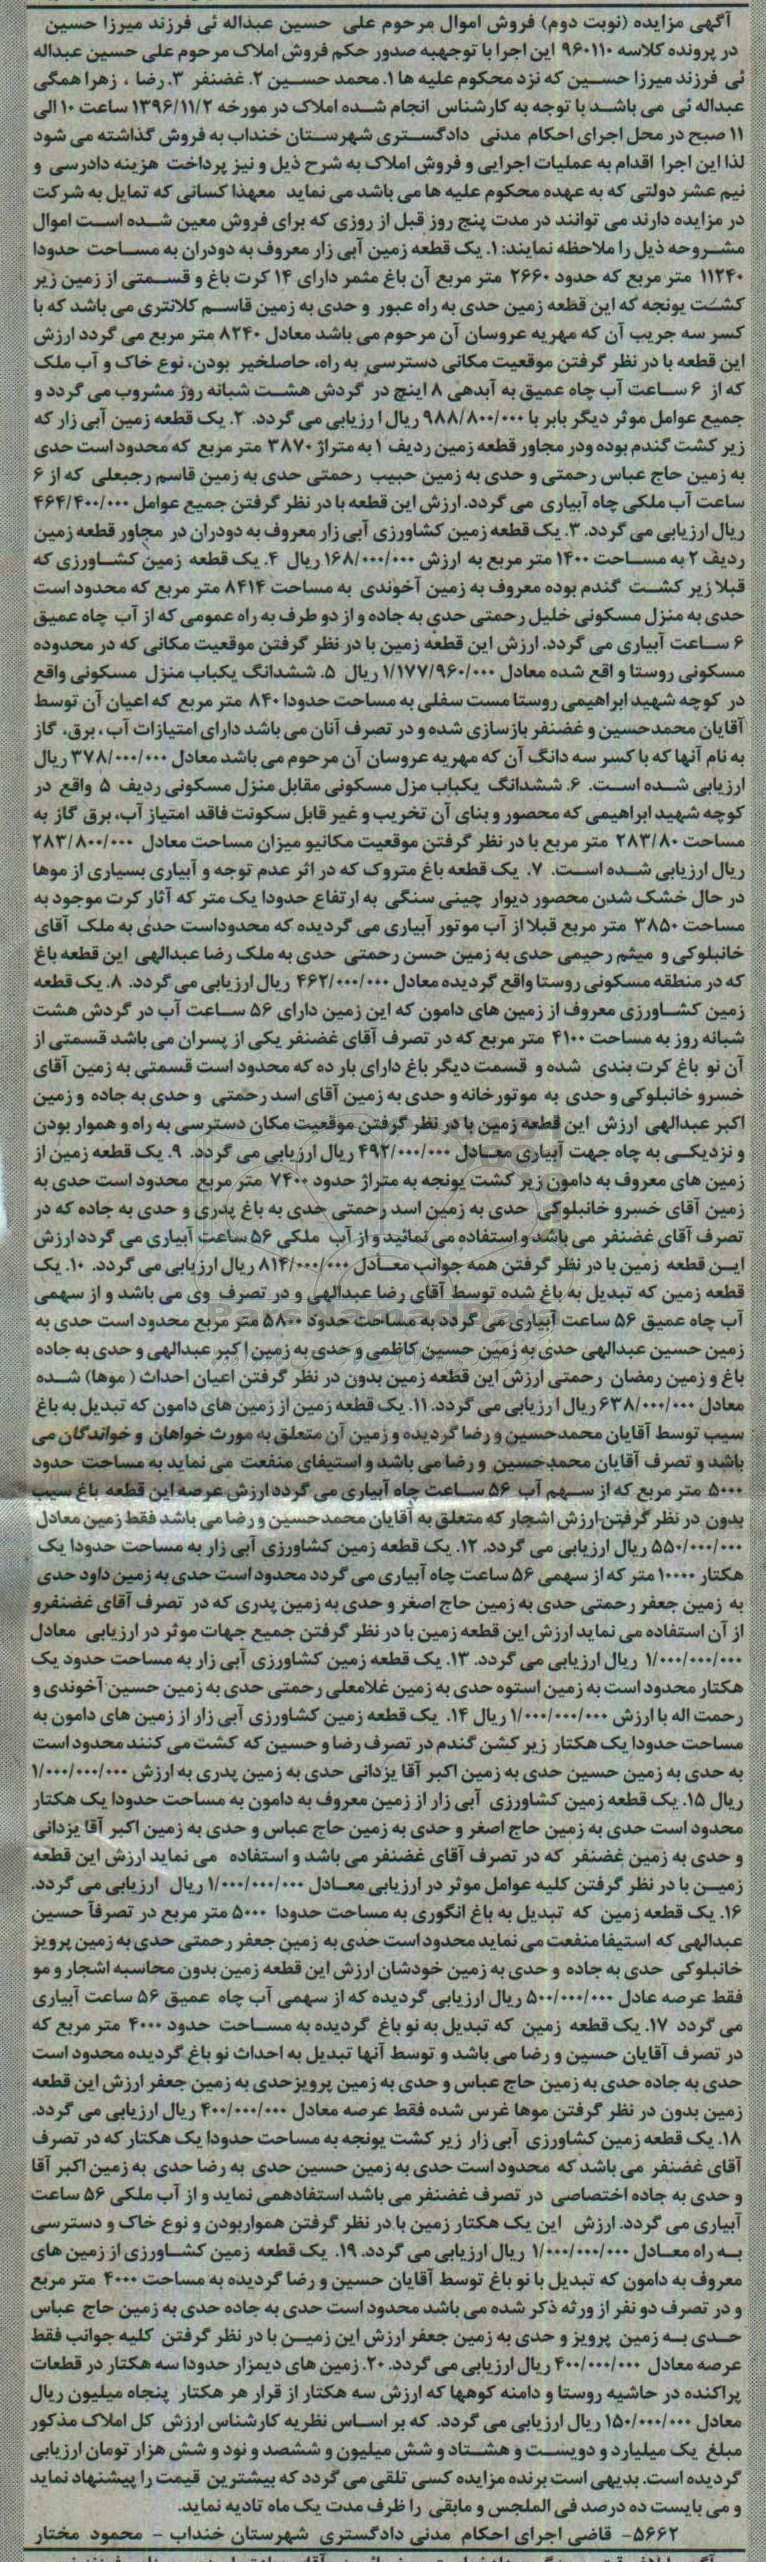 آگهی مزایده (نوبت دوم) فروش اموال مرحوم علی حسین عبداله ئی فرزند میرزا حسین
در پرونده کلاسه ۹۶۰۱۱۰ این اجرا با توجهبه صدور حکم فروش املاک مرحوم علی حسین عبداله
ئی فرزند میرزا حسین که نزد محکوم علیه ها ۱. محمد حسین ۲. غضنفر ۳. رضا ، زهرا همگی
عبداله ئی می باشد با توجه به کارشناس انجام شده املاک در مورخه ۱۳۹۶/۱۱/۲ ساعت ۱۰ الی
۱۱ صبح در محل اجرای احکام مدنی دادگستری شهرستان خنداب به فروش گذاشته می شود
لذا این اجرا اقدام به عملیات اجرایی و فروش املاک به شرح ذیل و نیز پرداخت هزینه دادرسی و
نیم عشر دولتی که به عهده محکوم علیه ها می باشد می نماید معهذا کسانی که تمایل به شرکت
در مزایده دارند می توانند در مدت پنج روز قبل از روزی که برای فروش معین شده است اموال
مشروحه ذیل را ملاحظه نمایند: ۱. یک قطعه زمین آبی زار معروف به دودران به مساحت حدودا
۱۱۲۴۰ متر مربع که حدود ۲۶۶۰ متر مربع آن باغ مثمر دارای ۱۴ کرت باغ و قسمتی از زمین زیر
کشت یونجه که این قطعه زمین حدی به راه عبور و حدی به زمین قاسم کلانتری می باشد که با
کسر سه جریب آن که مهریه عروسان آن مرحوم می باشد معادل ۸۲۴۰ متر مربع می گردد ارزش
این قطعه با در نظر گرفتن موقعیت مکانی دسترسی به راه، حاصلخیر بودن، نوع خاک و آب ملک
که از ۶ ساعت آب چاه عمیق به آبدهی ۸ اینچ در گردش هشت شبانه روز مشروب می گردد و
جمیع عوامل موثر دیگر بابر با ۹۸۸/۸۰۰/۰۰۰ ریال ارزیابی می گردد. ۲. یک قطعه زمین آبی زار که
زیر کشت گندم بوده ودر مجاور قطعه زمین ردیف ۱ به متراژ ۳۸۷۰ متر مربع که محدود است حدی
به زمین حاج عباس رحمتی و حدی به زمین حبیب رحمتی حدی به زمین قاسم رجبعلی که از ۶
ساعت آب ملکی چاه آبیاری می گردد. ارزش این قطعه با در نظر گرفتن جمیع عوامل ۴۶۴/۴۰۰/۰۰۰
ریال ارزیابی می گردد. ۳. یک قطعه زمین کشاورزی آبی زار معروف به دودران در مجاور قطعه زمین
ردیف ۲ به مساحت ۱۴۰۰ متر مربع به ارزش ۱۶۸/۰۰۰/۰۰۰ ریال ۴. یک قطعه زمین کشاورزی که
قبلا زیر کشت گندم بوده معروف به زمین آخوندی به مساحت ۸۴۱۴ متر مربع که محدود است
حدی به منزل مسکونی خلیل رحمتی حدی به جاده و از دو طرف به راه عمومی که از آب چاه عمیق
۶ ساعت آبیاری می گردد. ارزش این قطعه زمین با در نظر گرفتن موقعیت مکانی که در محدوده
مسکونی روستا و اقع شده معادل ۱/۱۷۷/۹۶۰/۰۰۰ ریال ۵. ششدانگ یکباب منزل مسکونی واقع
در کوچه شهید ابراهیمی روستا مست سفلی به مساحت حدودا ۸۴۰ متر مربع که اعیان آن توسط
آقایان محمدحسین و غضنفر بازسازی شده و در تصرف آنان می باشد دارای امتیازات آب ، برق، گاز
به نام آنها که با کسر سه دانگ آن که مهریه عروسان آن مرحوم می باشد معادل ۳۷۸/۰۰۰/۰۰۰ ریال
ارزیابی شده است. ۶. ششدانگ یکباب مزل مسکونی مقابل منزل مسکونی ردیف ۵ واقع در
کوچه شهید ابراهیمی که محصور و بنای آن تخریب و غیر قابل سکونت فاقد امتیاز آب، برق گاز به
مساحت ۲۸۳/۸۰ متر مربع با در نظر گرفتن موقعیت مکانیو میزان مساحت معادل ۲۸۳/۸۰۰/۰۰۰
ریال ارزیابی شده است. ۷. یک قطعه باغ متروک که در اثر عدم توجه و آبیاری بسیاری از موها
در حال خشک شدن محصور دیوار چینی سنگی به ارتفاع حدودا یک متر که آثار کرت موجود به
مساحت ۳۸۵۰ متر مربع قبلا از آب موتور آبیاری می گردیده که محدوداست حدی به ملک آقای
خانبلوکی و میثم رحیمی حدی به زمین حسن رحمتی حدی به ملک رضا عبدالهی این قطعه باغ
که در منطقه مسکونی روستا واقع گردیده معادل ۴۶۲/۰۰۰/۰۰۰ ریال ارزیابی می گردد. ۸. یک قطعه
زمین کشاورزی معروف از زمین های دامون که این زمین دارای ۵۶ ساعت آب در گردش هشت
شبانه روز به مساحت ۴۱۰۰ متر مربع که در تصرف آقای غضنفر یکی از پسران می باشد قسمتی از
آن نو باغ کرت بندی شده و قسمت دیگر باغ دارای بار ده که محدود است قسمتی به زمین آقای
خسرو خانبلوکی و حدی به موتورخانه و حدی به زمین آقای اسد رحمتی و حدی به جاده و زمین
اکبر عبدالهی ارزش این قطعه زمین با در نظر گرفتن موقعیت مکان دسترسی به راه و هموار بودن
و نزدیکی به چاه جهت آبیاری معادل ۴۹۲/۰۰۰/۰۰۰ ریال ارزیابی می گردد. ۹. یک قطعه زمین از
زمین های معروف به دامون زیر کشت یونجه به متراژ حدود ۷۴۰۰ متر مربع محدود است حدی به
زمین آقای خسرو خانبلوکی حدی به زمین اسد رحمتی حدی به باغ پدری و حدی به جاده که در
تصرف آقای غضنفر می باشد و استفاده می نمائید و از آب ملکی ۵۶ ساعت آبیاری می گردد ارزش
این قطعه زمین با در نظر گرفتن همه جوانب معادل ۸۱۴/۰۰۰/۰۰۰ ریال ارزیابی می گردد. ۱۰. یک
قطعه زمین که تبدیل به باغ شده توسط آقای رضا عبدالهی و در تصرف وی می باشد و از سهمی
آب چاه عمیق ۵۶ ساعت آبیاری می گردد به مساحت حدود ۵۸۰۰ متر مربع محدود است حدی به
زمین حسین عبدالهی حدی به زمین حسین کاظمی و حدی به زمین اکبر عبدالهی و حدی به جاده
باغ و زمین رمضان رحمتی ارزش این قطعه زمین بدون در نظر گرفتن اعیان احداث ( موها) شده
معادل ۶۳۸/۰۰۰/۰۰۰ ریال ارزیابی می گردد. ۱۱. یک قطعه زمین از زمین های دامون که تبدیل به باغ
سیب توسط آقایان محمدحسین و رضا گردیده و زمین آن متعلق به مورث خواهان و خواندگان می
باشد و تصرف آقایان محمدحسین و رضا می باشد و استیفای منفعت می نماید به مساحت حدود
۵۰۰۰ متر مربع که از سهم آب ۵۶ ساعت چاه آبیاری می گردد ارزش عرصه این قطعه باغ سیب
بدون در نظر گرفتن ارزش اشجار که متعلق به آقایان محمدحسین و رضا می باشد فقط زمین معادل
۵۵۰/۰۰۰/۰۰۰ ریال ارزیابی می گردد. ۱۲. یک قطعه زمین کشاورزی آبی زار به مساحت حدودا یک
هکتار ۱۰۰۰۰ متر که از سهمی ۵۶ ساعت چاه آبیاری می گردد محدود است حدی به زمین داود حدی
به زمین جعفر رحمتی حدی به زمین حاج اصغر و حدی به زمین پدری که در تصرف آقای غضنفرو
از آن استفاده می نماید ارزش این قطعه زمین با در نظر گرفتن جمیع جهات موثر در ارزیابی معادل
۱/۰۰۰/۰۰۰/۰۰۰ ریال ارزیابی می گردد. ۱۳. یک قطعه زمین کشاورزی آبی زار به مساحت حدود یک
هکتار محدود است به زمین استوه حدی به زمین غلامعلی رحمتی حدی به زمین حسین آخوندی و
رحمت اله با ارزش ۱/۰۰۰/۰۰۰/۰۰۰ ریال ۱۴. یک قطعه زمین کشاورزی آبی زار از زمین های دامون به
مساحت حدودا یک هکتار زیر کشن گندم در تصرف رضا و حسین که کشت می کنند محدود است
به حدی به زمین حسین حدی به زمین اکبر آقا یزدانی حدی به زمین پدری به ارزش ۱/۰۰۰/۰۰۰/۰۰۰
ریال ۱۵. یک قطعه زمین کشاورزی آبی زار از زمین معروف به دامون به مساحت حدودا یک هکتار
محدود است حدی به زمین حاج اصغر و حدی به زمین حاج عباس و حدی به زمین اکبر آقا یزدانی
و حدی به زمین غضنفر که در تصرف آقای غضنفر می باشد و استفاده می نماید ارزش این قطعه
زمین با در نظر گرفتن کلیه عوامل موثر در ارزیابی معادل ۱/۰۰۰/۰۰۰/۰۰۰ ریال ارزیابی می گردد.
۱۶. یک قطعه زمین که تبدیل به باغ انگوری به مساحت حدودا ۵۰۰۰ متر مربع در تصرفآ حسین
عبدالهی که استیفا منفعت می نماید محدود است حدی به زمین جعفر رحمتی حدی به زمین پرویز
خانبلوکی حدی به جاده و حدی به زمین خودشان ارزش این قطعه زمین بدون محاسبه اشجار و مو
فقط عرصه عادل ۵۰۰/۰۰۰/۰۰۰ ریال ارزیابی گردیده که از سهمی آب چاه عمیق ۵۶ ساعت آبیاری
می گردد ۱۷. یک قطعه زمین که تبدیل به نو باغ گردیده به مساحت حدود ۴۰۰۰ متر مربع که
در تصرف آقایان حسین و رضا می باشد و توسط آنها تبدیل به احداث نو باغ گردیده محدود است
حدی به جاده حدی به زمین حاج عباس و حدی به زمین پرویزحدی به زمین جعفر ارزش این قطعه
زمین بدون در نظر گرفتن موها غرس شده فقط عرصه معادل ۴۰۰/۰۰۰/۰۰۰ ریال ارزیابی می گردد.
۱۸. یک قطعه زمین کشاورزی آبی زار زیر کشت یونجه به مساحت حدودا یک هکتار که در تصرف
آقای غضنفر می باشد که محدود است حدی به زمین حسین حدی به رضا حدی به زمین اکبر آقا
و حدی به جاده اختصاصی در تصرف غضنفر می باشد استفادهمی نماید و از آب ملکی ۵۶ ساعت
آبیاری می گردد. ارزش این یک هکتار زمین با در نظر گرفتن همواربودن و نوع خاک و دسترسی
به راه معادل ۱/۰۰۰/۰۰۰/۰۰۰ ریال ارزیابی می گردد. ۱۹. یک قطعه زمین کشاورزی از زمین های
معروف به دامون که تبدیل با نو باغ توسط آقایان حسین و رضا گردیده به مساحت ۴۰۰۰ متر مربع
و در تصرف دو نفر از ورثه ذکر شده می باشد محدود است حدی به جاده حدی به زمین حاج عباس
حدی به زمین پرویز و حدی به زمین جعفر ارزش این زمین با در نظر گرفتن کلیه جوانب فقط
عرصه معادل ۴۰۰/۰۰۰/۰۰۰ ریال ارزیابی می گردد. ۲۰. زمین های دیمزار حدودا سه هکتار در قطعات
پراکنده در حاشیه روستا و دامنه کوهها که ارزش سه هکتار از قرار هر هکتار پنجاه میلیون ریال
معادل ۱۵۰/۰۰۰/۰۰۰ ریال ارزیابی می گردد. که بر اساس نظریه کارشناس ارزش کل املاک مذکور
مبلغ یک میلیارد و دویست و هشتاد و شش میلیون و ششصد و نود و شش هزار تومان ارزیابی
گردیده است. بدیهی است برنده مزایده کسی تلقی می گردد که بیشترین قیمت را پیشنهاد نماید
و می بایست ده درصد فی الملجس و مابقی را ظرف مدت یک ماه تادیه نماید.
۵۶۶۲- قاضی اجرای احکام مدنی دادگستری شهرستان خنداب - محمود مختار